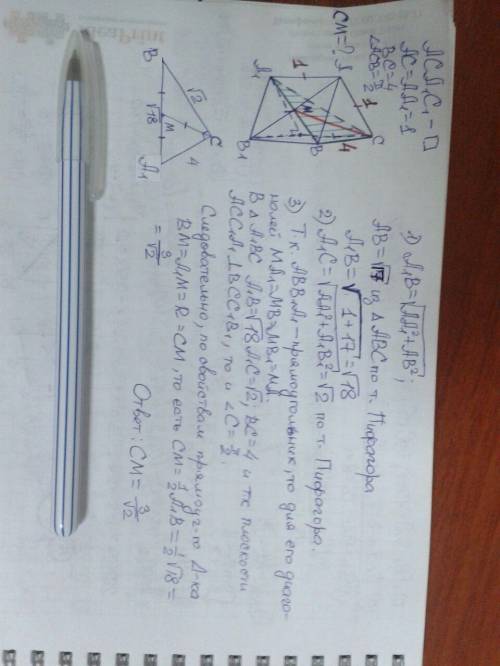 ACA₁C₁ - □
AC=AA₁=1
BC=4
∠ACB=π/2
CM=?
A₁
A
1
1
M
C
4
B₁
B
1) A₁B=√AA₁²+AB²;
AB=√17 из ΔABC по т. Пифагора
A₁B=√1+17=√18
2) A₁C=√AA₁²+A₁B₁²=√2 по т. Пифагора.
3) Т.к. ABB₁A₁-прямоугольник, то для его диаго-
налей MA₁=MB=MB₁=MA.
В ΔA₁BC A₁B=√18 A₁C=√2; BC=4 и т.к плоскости
ACC₁A₁⊥BCC₁B₁, то и ∠C=π/2.
Следовательно, по свойствам прямоуг-го Δ-ка
BM=A₁M=R=CM, то есть CM=1/2A₁B=1/2√18=
=3/√2
Ответ: CM=3/√2
B
√2
C
√18
M
4
A₁